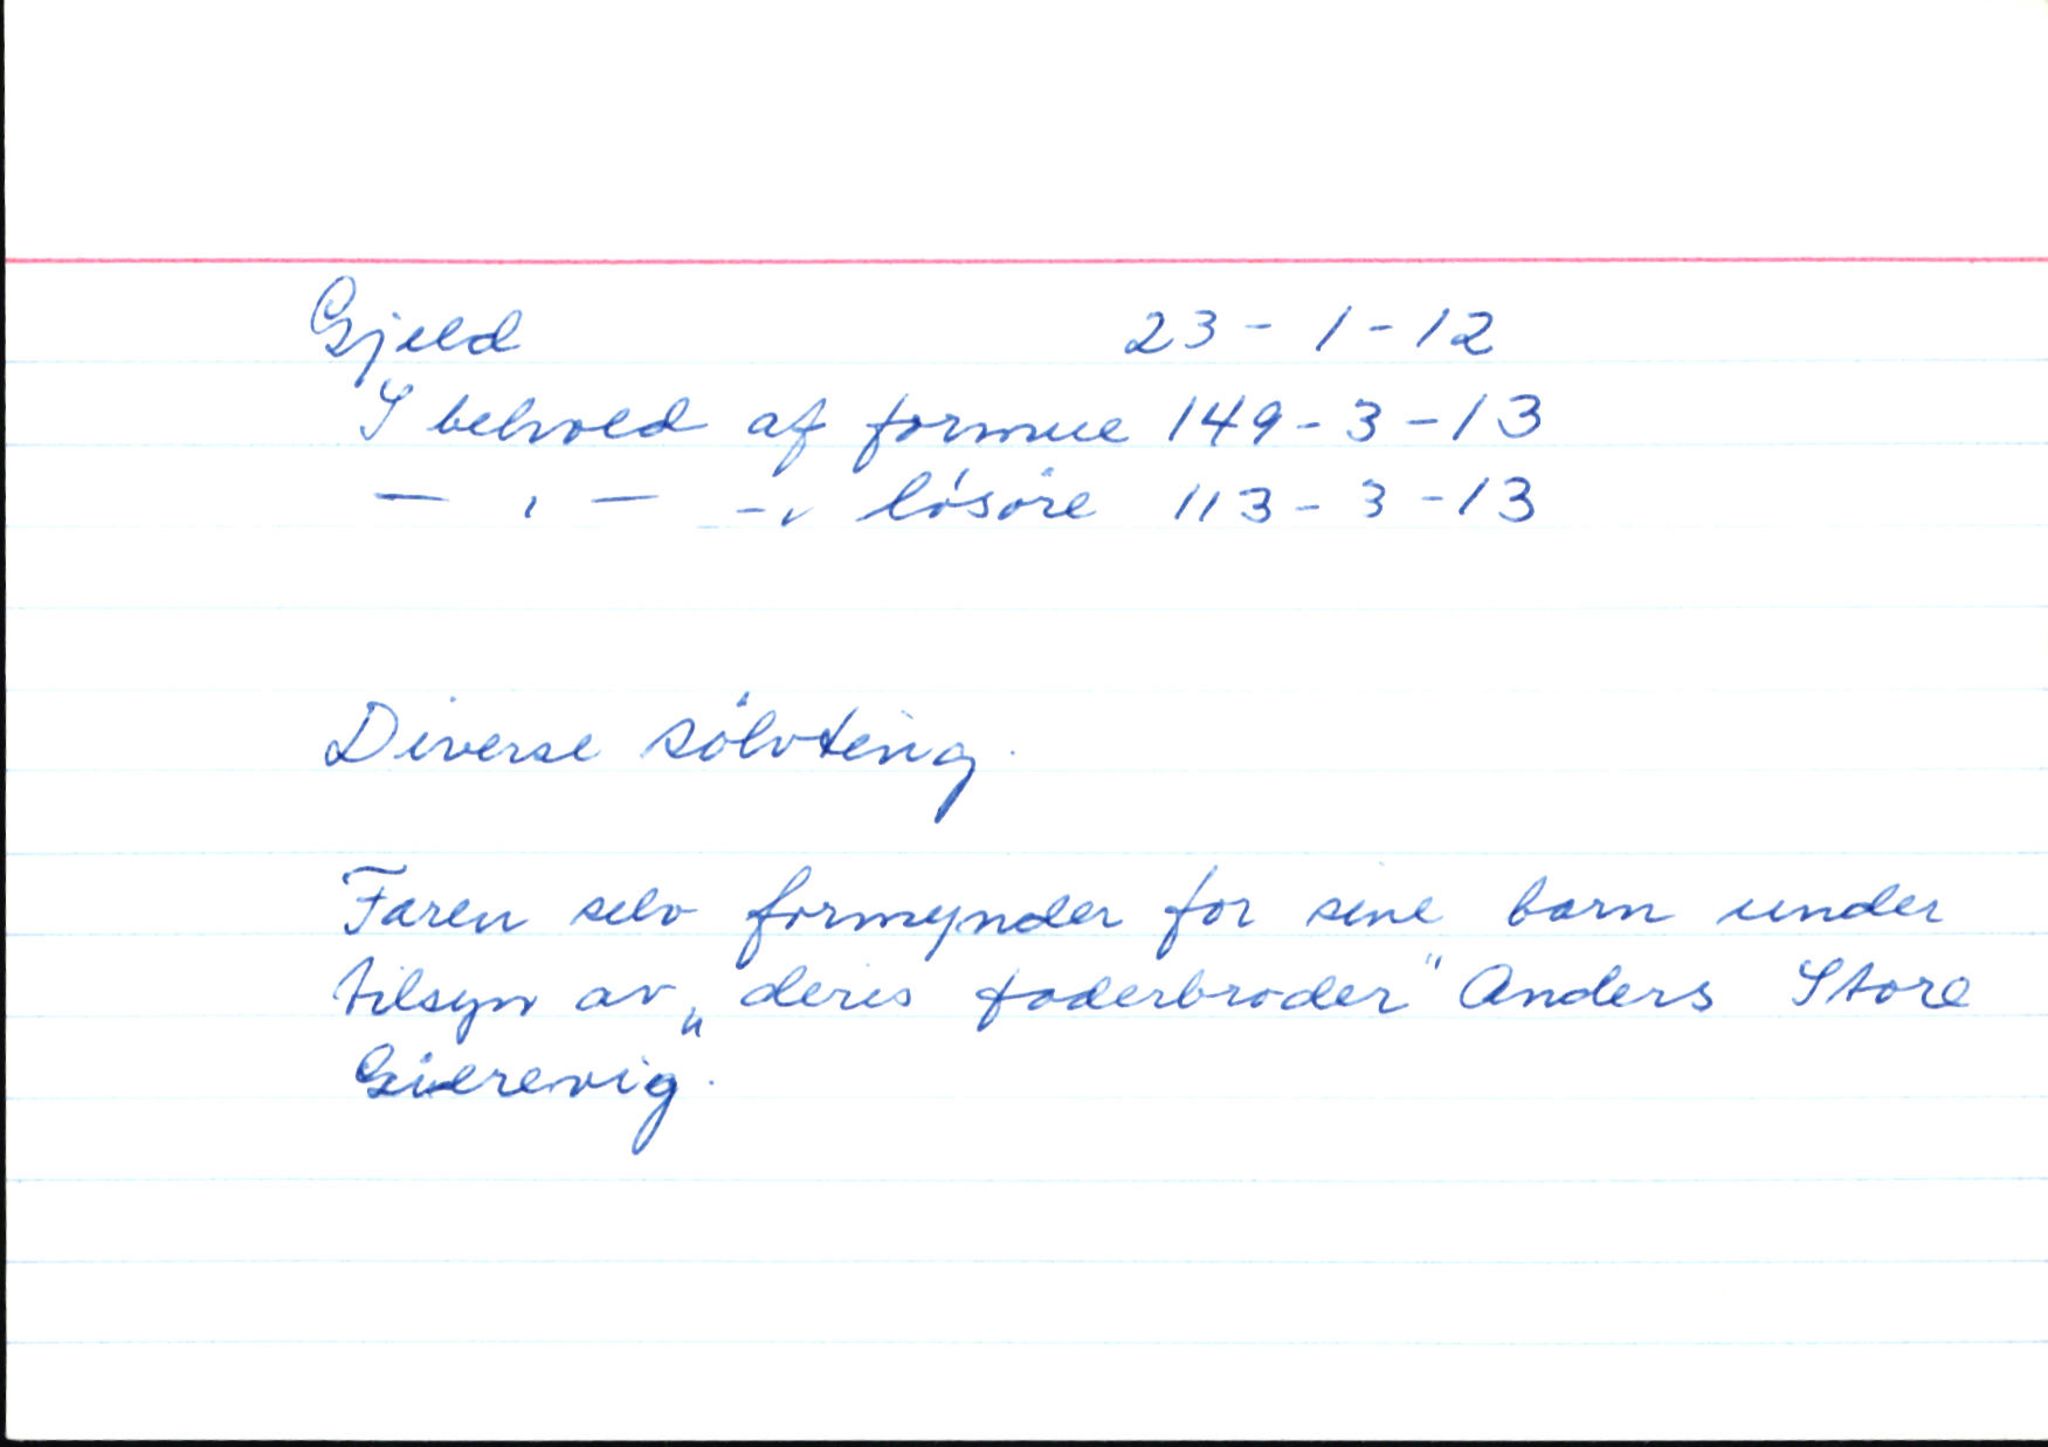 Gjeld 23 - 1 - 12
I behold af formue 149 - 3 - 13
— , — - , lösöre 113 - 3 - 13
Diverse sölvting.
Faren selv formynder for sine barn under
tilsyn av „deres faderbroder" Anders Store
Gierevig.